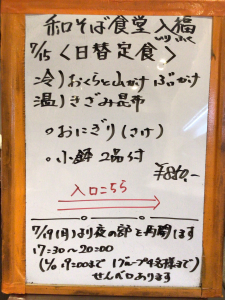 和そば食堂 入福
いり ふく
7/15 〈日替定食〉
冷) おくらと山かけ ぶっかけ
温) きざみ昆布
○ おにぎり (さけ)
○ 小鉢 2品付
¥860.-
入口こちら
7/19(月)より夜の部を再開します
17:30〜20:00
(L/o 19:00まで 1グループ4名様まで)
せんべロあります